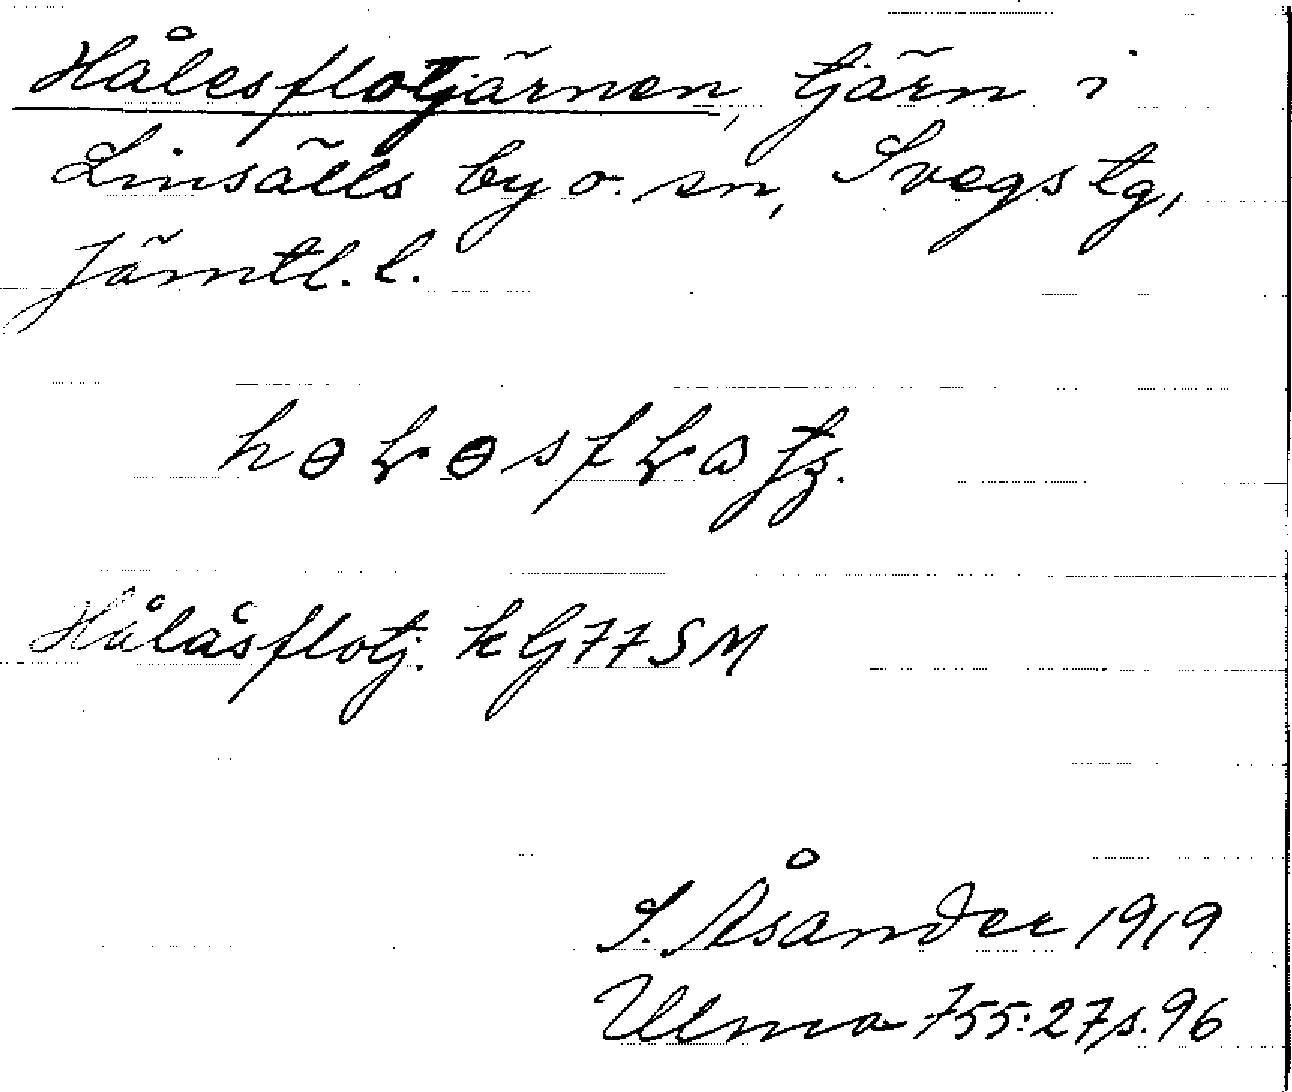 Hålesflotjärnen, tjärn i
Linsälls by o. sn, Svegs tg,
Jämtl. l.
Hålåsflotj. k bj 77 SM
S. Åsander 1919
Ulma 755:27 s. 96